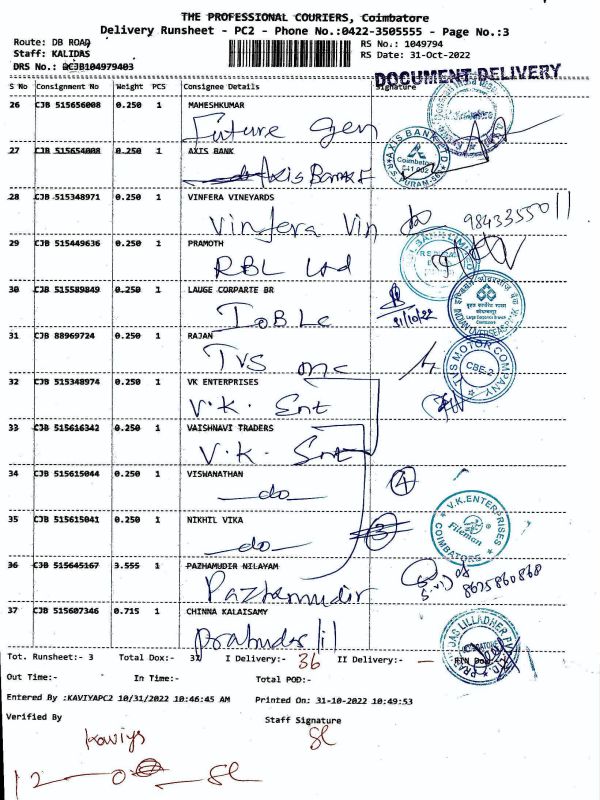 THE PROFESSIONAL COURIERS, Coimbatore
Delivery Runsheet - PC2 - Phone No.:0422-3505555 - Page No.:3
Route: DB ROAD
RS No.: 1049794
Staff: KALIDAS
RS Date: 31-Oct-2022
DRS No.: DCJB104979403
DOCUMENT DELIVERY
S No Consignment No Weight PCS Consignee Details Signature
26 CJB 515656008 0.250 1 MAHESHKUMAR
Future Gen
27 CJB 515654008 0.250 1 AXIS BANK
Axis Bank
AXIS BANK LTD
Coimbatore
641 002
R.S. PURAM
28 CJB 515348971 0.250 1 VINFERA VINEYARDS
Vinfera Vin 9843355011
29 CJB 515449636 0.250 1 PRAMOTH
RBL Ltd
30 CJB 515589849 0.250 1 LAUGE CORPARTE BR
IOB Lc
31/10/22
31 CJB 88969724 0.250 1 RAJAN
TVS mc
TVS MOTOR COMPANY
CBE-2
32 CJB 515348974 0.250 1 VK ENTERPRISES
V.K. Ent
33 CJB 515616342 0.250 1 VAISHNAVI TRADERS
V.K. Ent
34 CJB 515615044 0.250 1 VISWANATHAN
do 4
35 CJB 515615041 0.250 1 NIKHIL VIKA
do 3
V.K.ENTERPRISES
Fileman
COIMBATORE
36 CJB 515645167 3.555 1 PAZHAMUDIR NILAYAM
Pazhamudir 8675860868
37 CJB 515607346 0.715 1 CHINNA KALAISAMY
Prabudas lil
Tot. Runsheet:- 3 Total Dox:- 37 I Delivery:- 36 II Delivery:- — RTN Dox:-
Out Time:- In Time:- Total POD:-
Entered By :KAVIYAPC2 10/31/2022 10:46:45 AM Printed On: 31-10-2022 10:49:53
Verified By Staff Signature
Kaviya